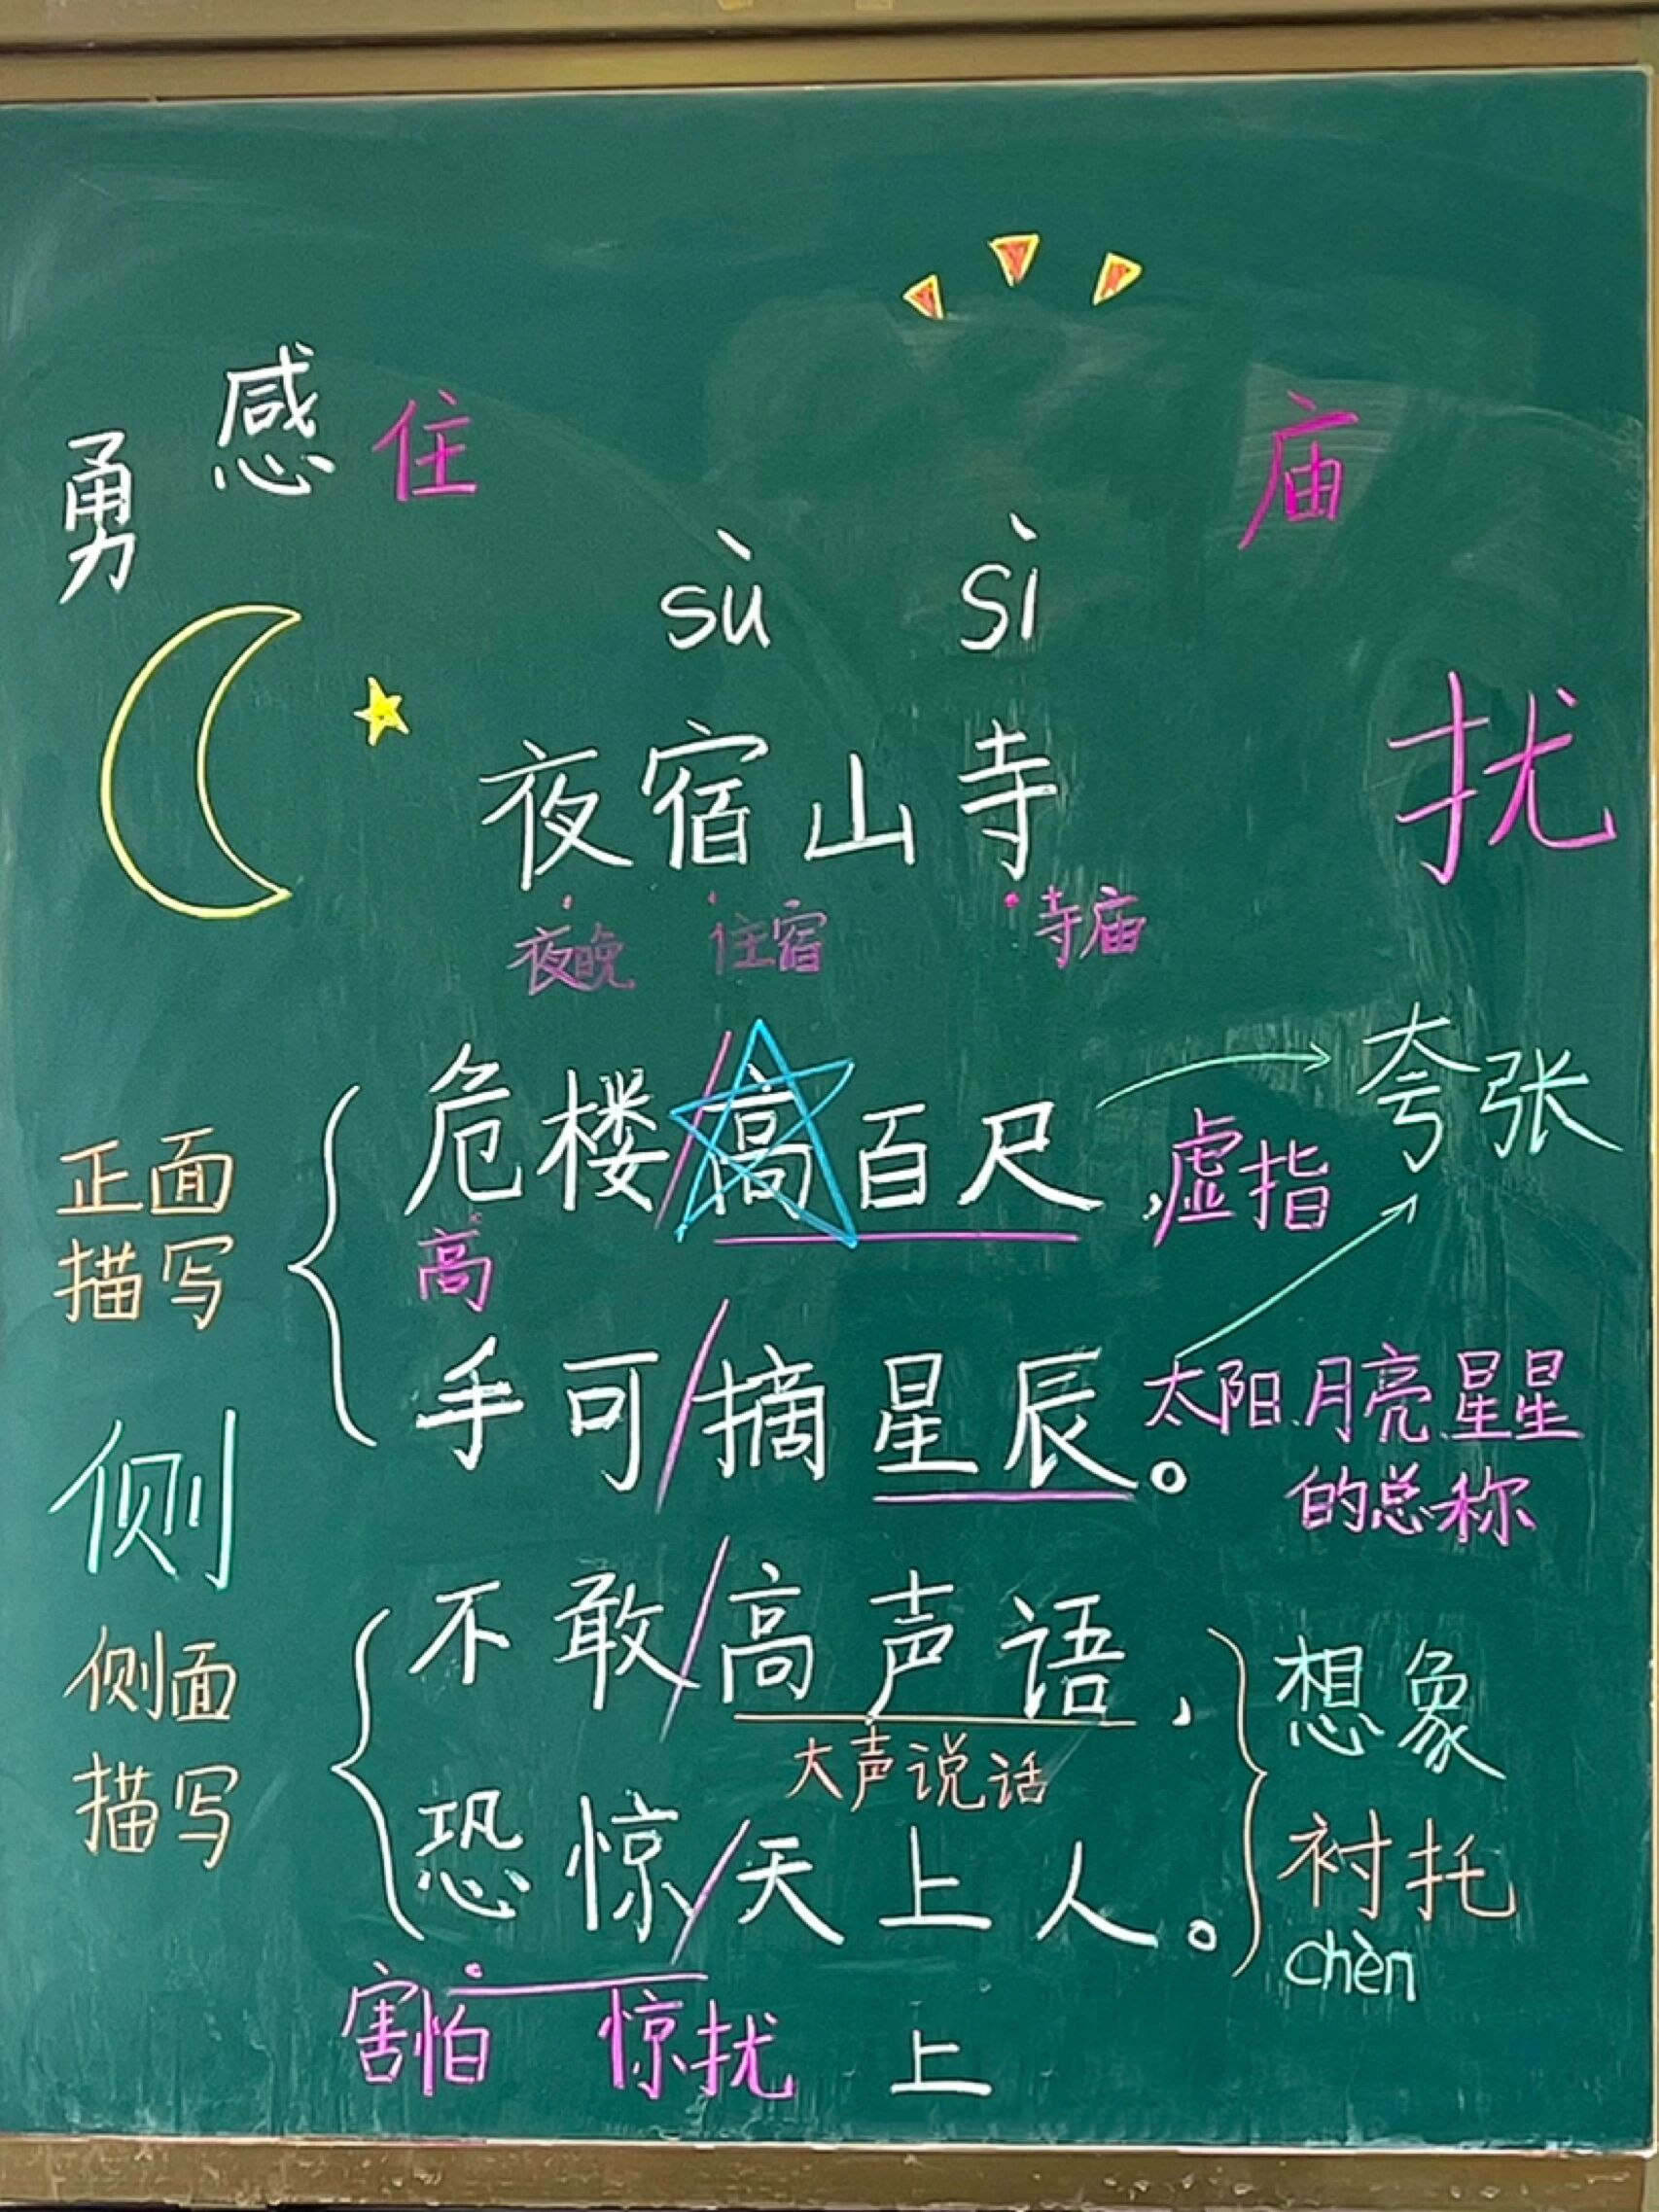 感
勇
住
庙
sù sì
扰
夜宿山寺
夜晚 住宿 寺庙
危楼/高百尺, 虚指
夸张
正面
描写
高
手可/摘星辰。
太阳、月亮、星星
的总称
侧
不敢/高声语,
侧面
描写
想象
大声说话
恐惊/天上人。
衬托
chèn
害怕 惊扰 上